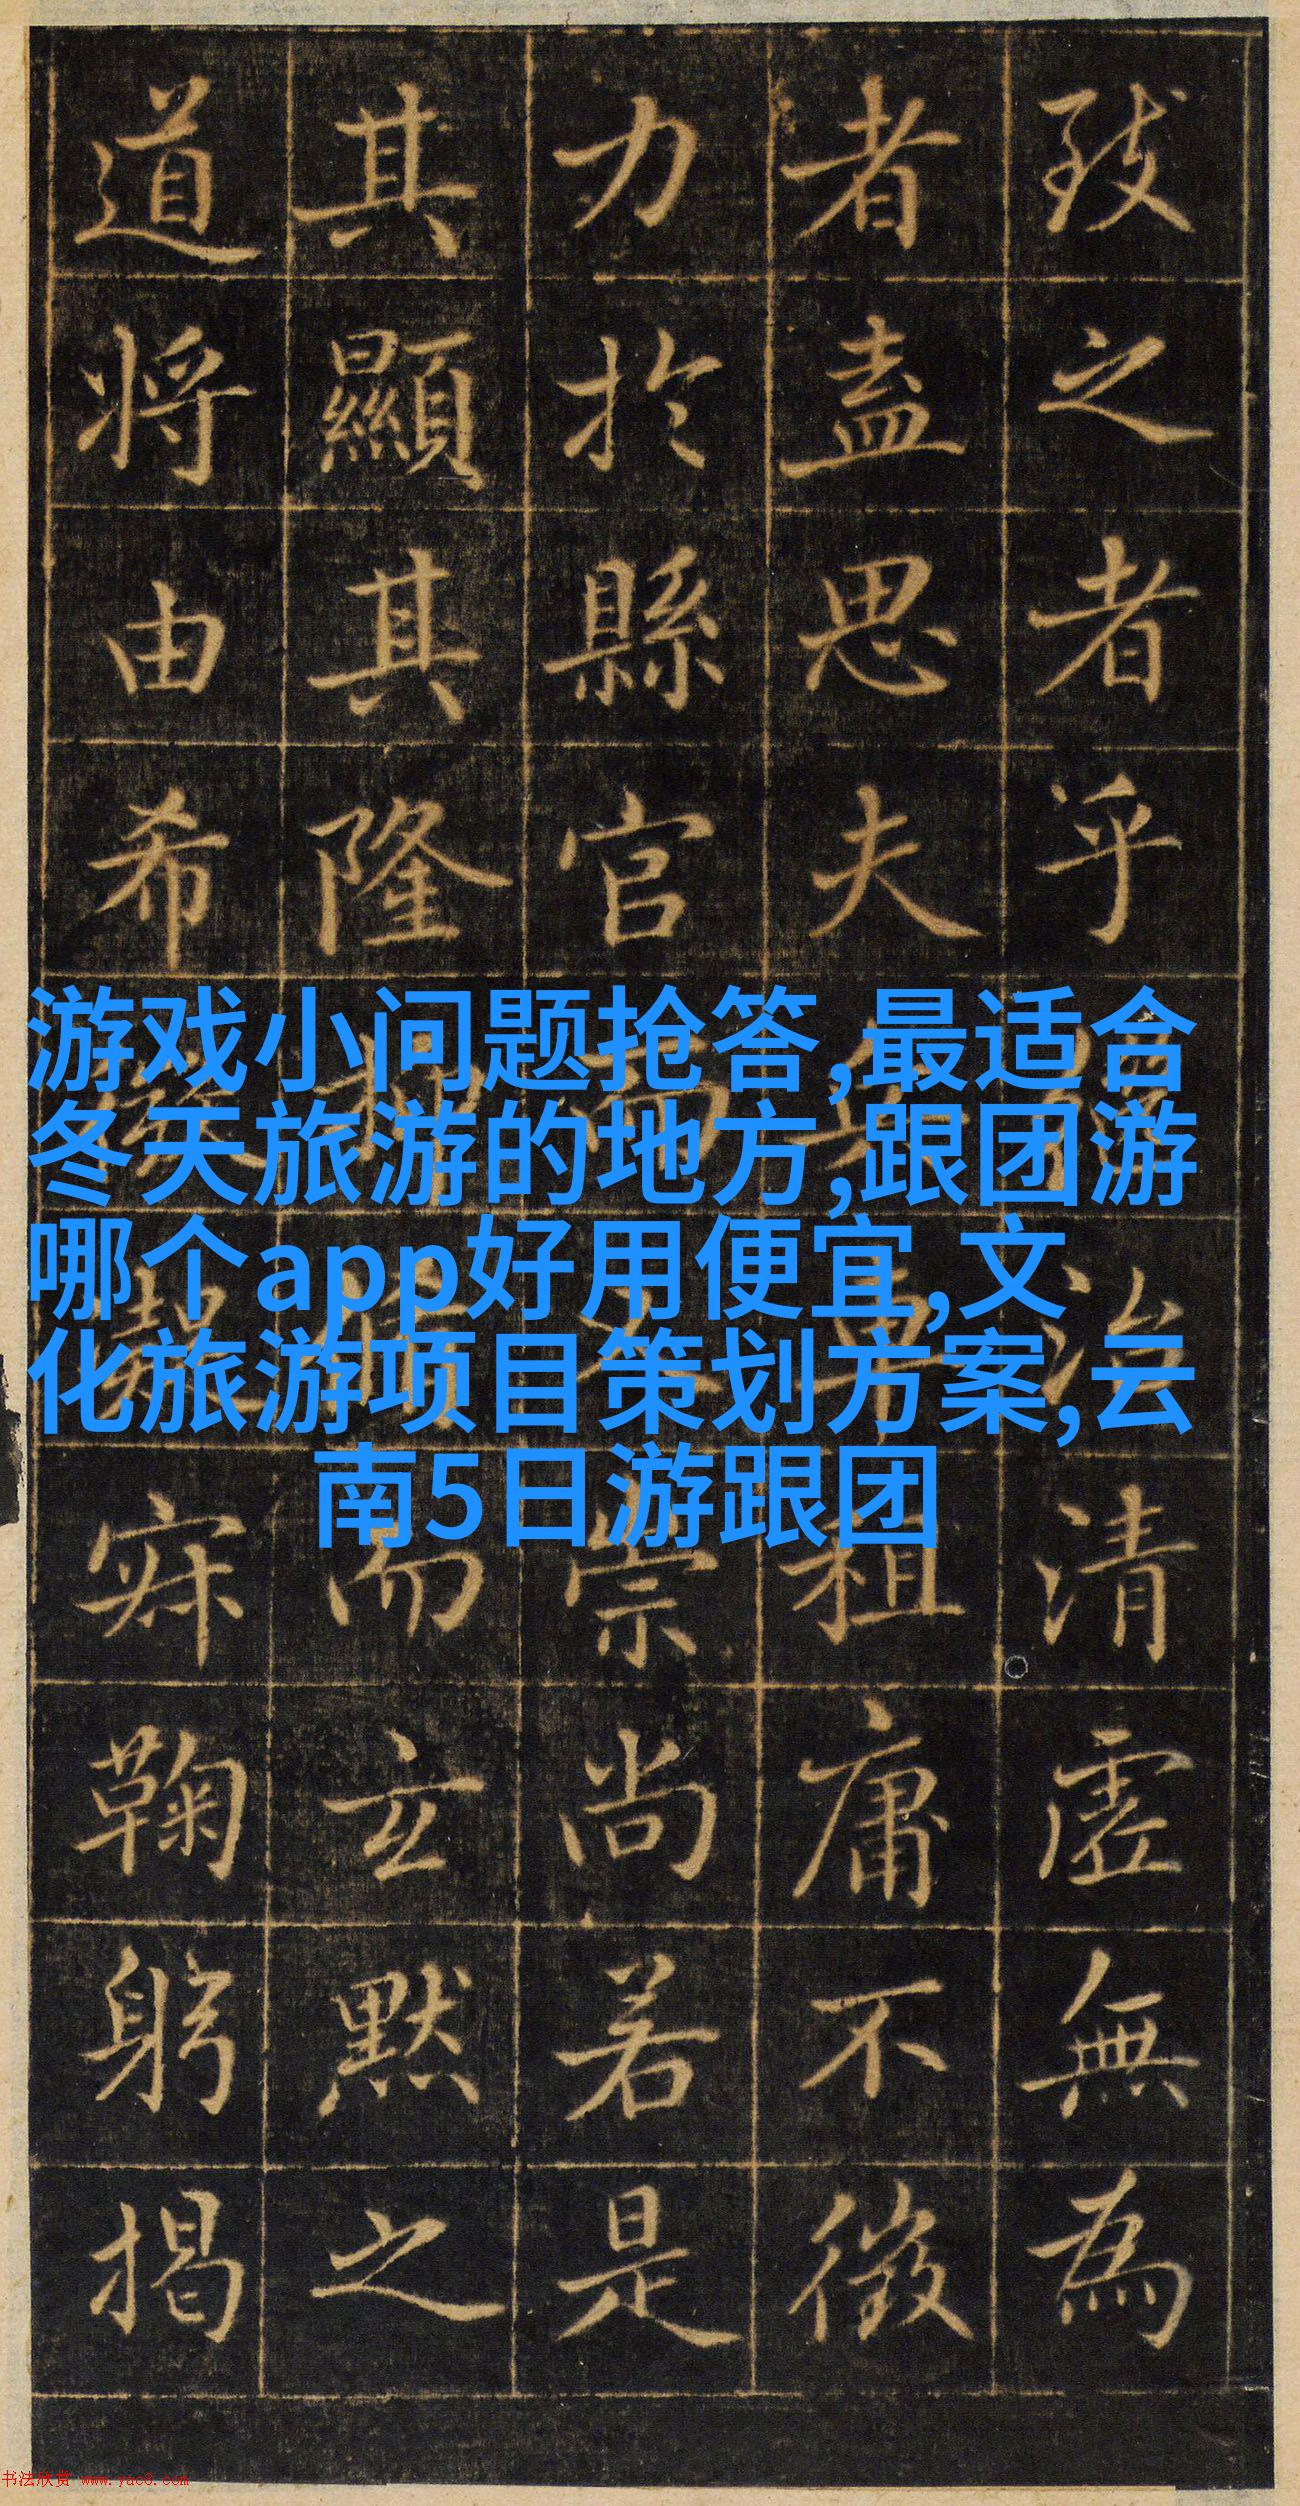 致之者乎治清虛無為
者盡思夫租庸不徵
力於縣官崇尚若是
其顯其隆而玄默之
道將由希寂鞠躬揭
游戏小问题抢答,最适合
冬天旅游的地方,跟团游
哪个app好用便宜,文
化旅游项目策划方案,云
南5日游跟团
书法欣赏 www.yac8.com